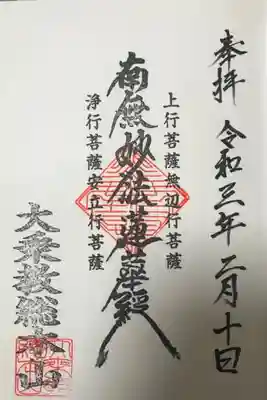 奉拝 令和三年二月十日
上行菩薩無辺行菩薩
南無妙法蓮華経
浄行菩薩安立行菩薩
大乗教総本山